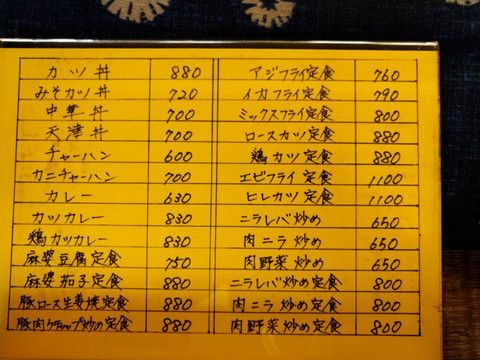 カツ丼 880
みそカツ丼 720
中華丼 700
天津丼 700
チャーハン 600
カニチャーハン 700
カレー 630
カツカレー 830
鶏カツカレー 830
麻婆豆腐定食 750
麻婆茄子定食 880
豚ロース生姜焼定食 880
豚肉ケチャップ炒め定食 880
アジフライ定食 760
イカフライ定食 790
ミックスフライ定食 800
ロースカツ定食 880
鶏カツ定食 880
エビフライ定食 1100
ヒレカツ定食 1100
ニラレバ炒め 650
肉ニラ炒め 650
肉野菜炒め 650
ニラレバ炒め定食 800
肉ニラ炒め定食 800
肉野菜炒め定食 800